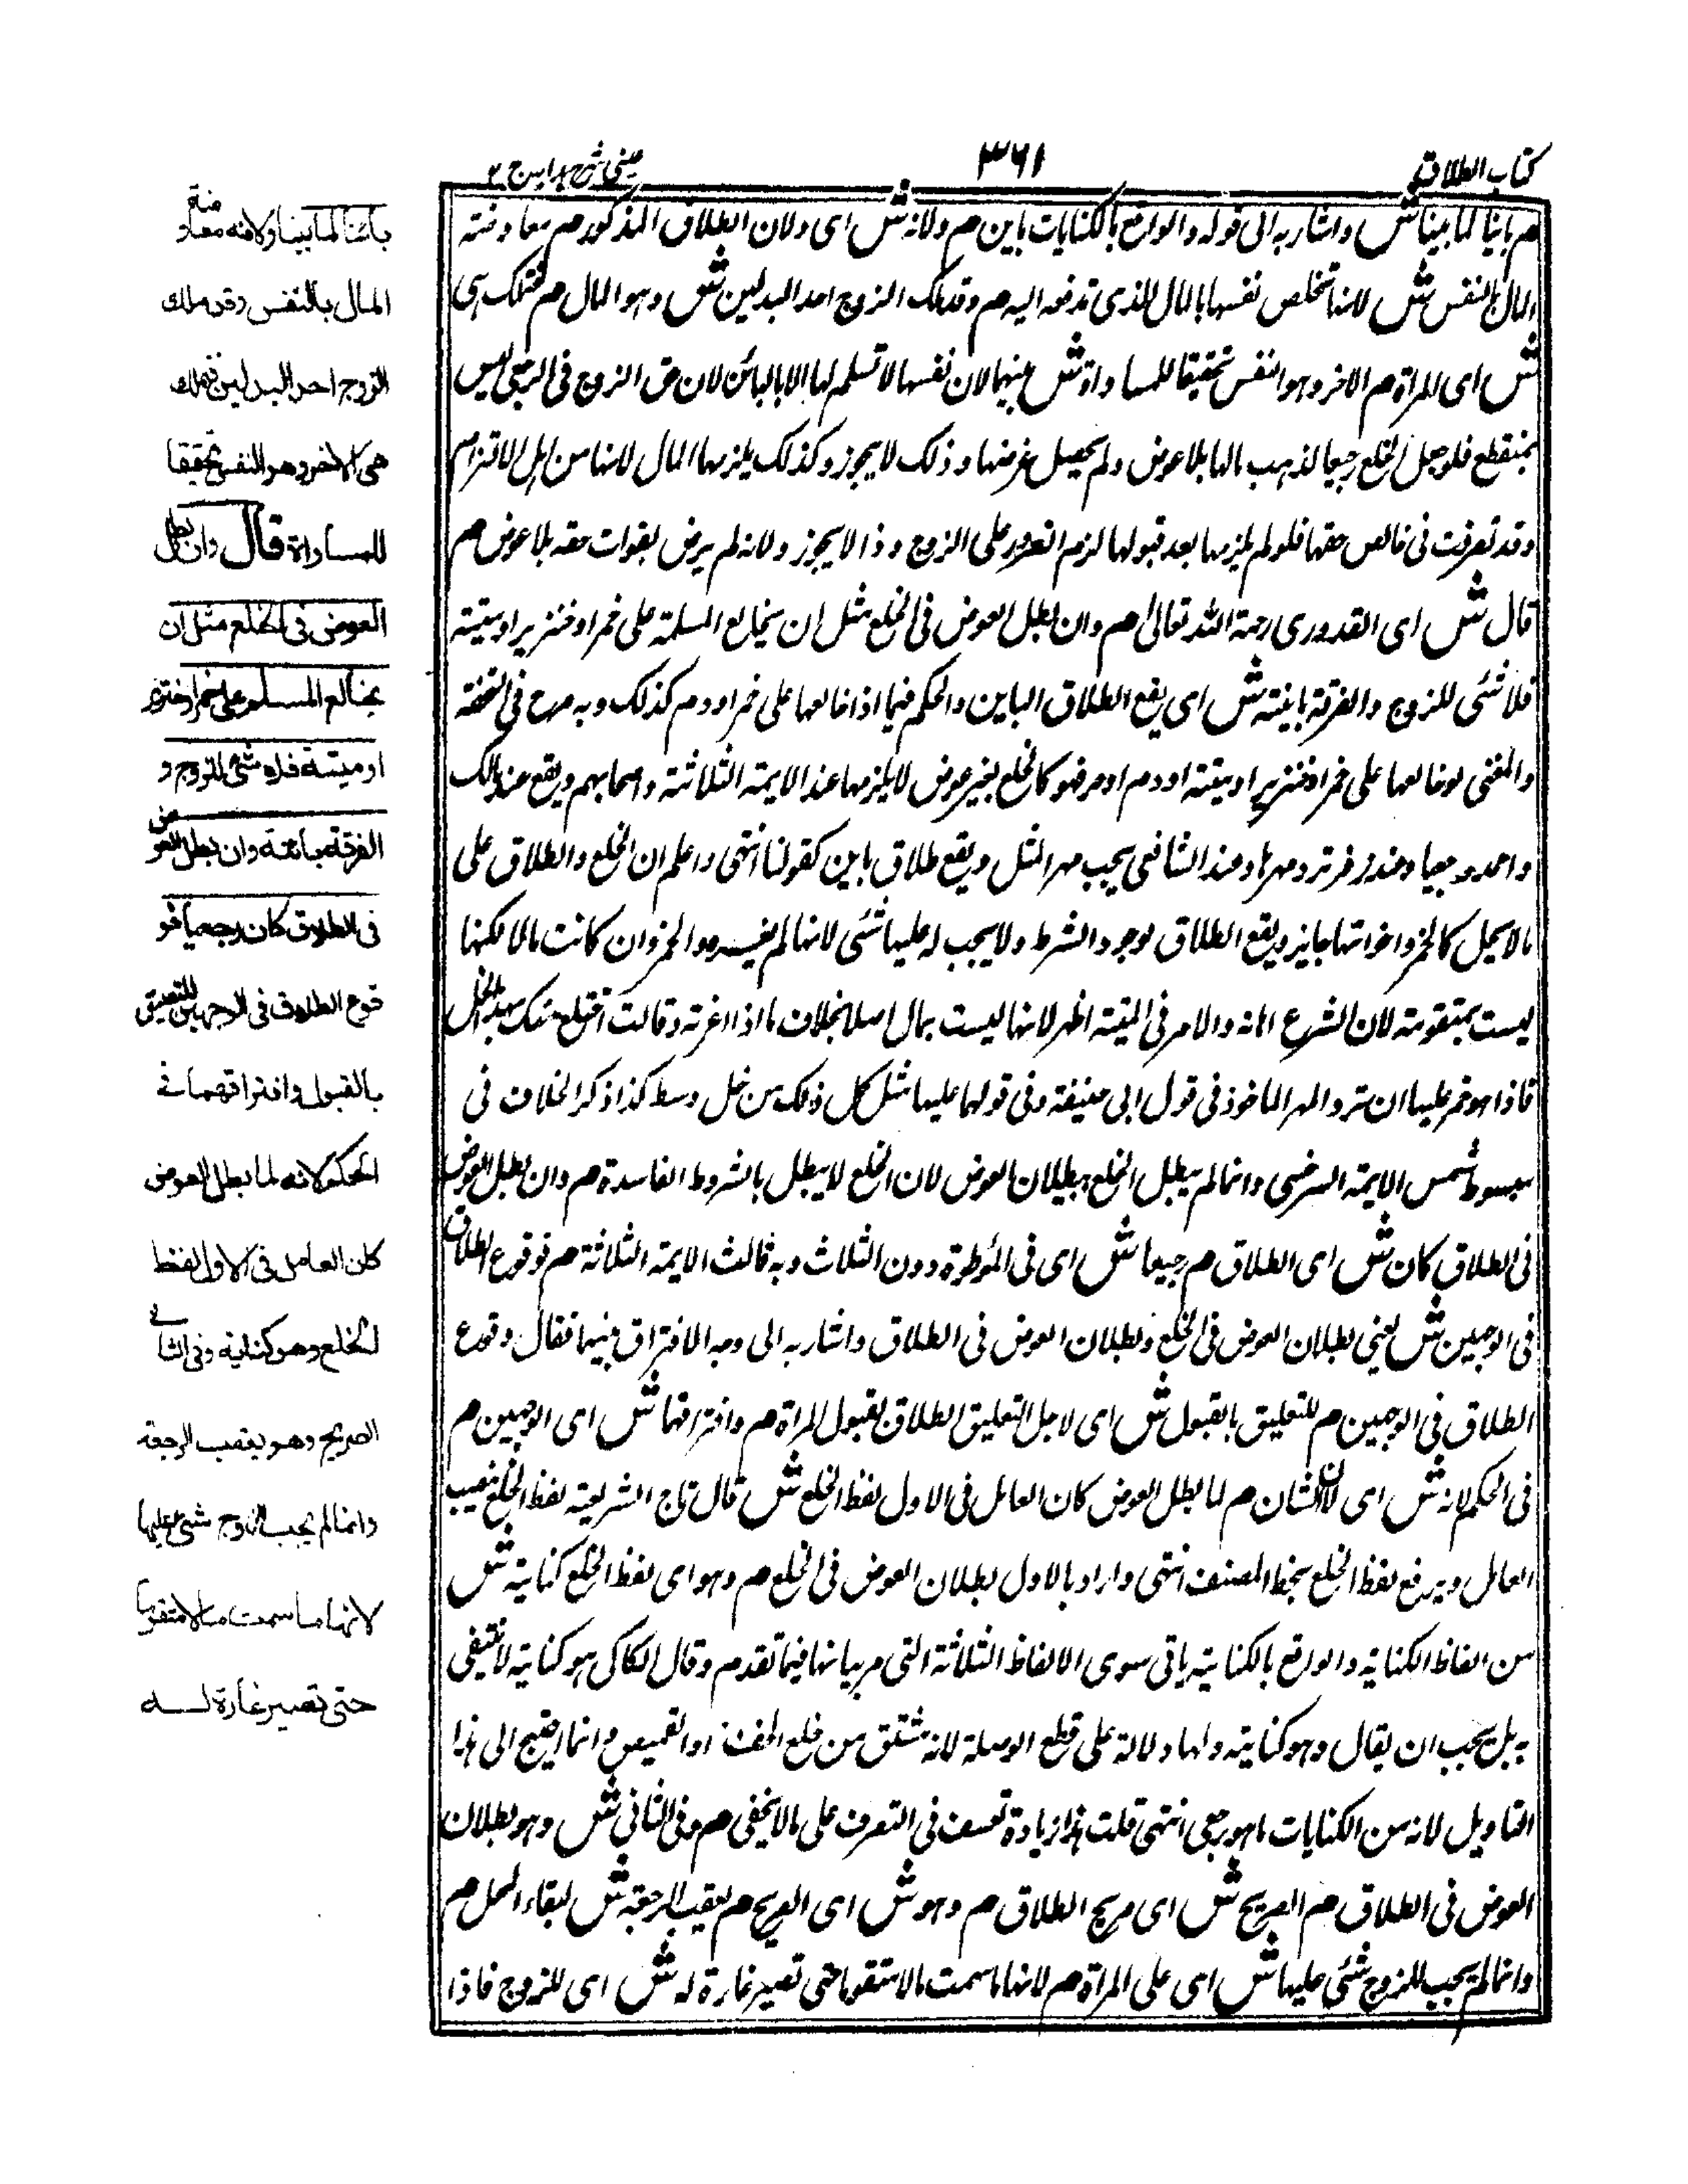 كتاب الطلاق
٣٦١
عيني شرح هداية ج ٢
م باينا لما بينا ش واشار به الى قوله والواقع بالكنايات باين م ولانه ش اى ولان الطلاق المذكور م معاوضته
المال بالنفس ش لانها تخلص نفسها بالمال الذى تدفعه اليه م وقد ملك الزوج احد البدلين ش وهو المال م فتملك هى
ش اى المراة م الاخر وهو النفس تحقيقا للمساواة ش بينهما لان نفسها لا تسلم لها الا بالبائن لان حق الزوج فى الرجعى ليس
بمنقطع فلو جعل الخلع رجعيا لذهب مالها بلا عوض ولم يحصل غرضها وذلك لا يجوز وكذلك يلزمها المال لانها من اهل الالتزام
وقد تصرفت فى خالص حقها فلو لم يلزمها بعد قبولها لزم الضرر على الزوج وذا لا يجوز ولانه لم يرض بفوات حقه بلا عوض م
قال ش اى القدورى رحمة الله تعالى م وان بطل العوض فى الخلع مثل ان يخالع المسلمة على خمر او خنزير او ميتة
فلا شئى للزوج والفرقة باينة ش اى يقع الطلاق الباين والحكم فيما اذا خالعها على خمر او دم كذلك وبه صرح فى التحفة
والمغنى لو خالعها على خمر او خنزير او ميتة او دم او حر فهو كالخلع بغير عوض لا يلزمها عند الايمة الثلاثة واصحابهم ويقع عند مالك
واحدة رجعيا وعند زفر ترد مهرها وعند الشافعى يجب مهر المثل ويقع طلاق باين كقولنا انتهى واعلم ان الخلع والطلاق على
مالا يحل كالخمر واخواتها جايز ويقع الطلاق لوجود الشرط ولا يجب له عليها شئى لانها لم تغيره والخمر وان كانت مالا لكنها
ليست بمتقومة لان الشرع اهانه والامر فى الميتة اظهر لانها ليست بمال اصلا بخلاف ما اذا اغرته وقالت اختلع منك بهذا الخل
فاذا هو خمر عليها ان ترد المهر الماخوذ فى قول ابى حنيفة وفى قولهما عليها مثل كل ذلك من خل وسط كذا ذكر الخلاف فى
مبسوط شمس الايمة السرخسى وانما لم يبطل الخلع ببطلان العوض لان الخلع لا يبطل بالشروط الفاسدة م وان بطل العوض
فى الطلاق كان ش اى الطلاق م رجيعا ش اى فى الموطوة دون الثلاث وبه قالت الايمة الثلاثة م فوقوع الطلاق
فى الوجهين ش يعنى بطلان العوض فى الخلع وبطلان العوض فى الطلاق واشار به الى وجه الافتراق بينهما فقال وقوع
الطلاق فى الوجهين م للتعليق بالقبول ش اى لاجل التعليق الطلاق بقبول المراة م وافتراقهما ش اى الوجهين م
فى الحكم لانه ش اى لان الشان م لما بطل العوض كان العامل فى الاول لفظ الخلع ش قال تاج الشريعة لفظ الخلع نصب
العامل ويرفع لفظ الخلع بخط المصنف انتهى واراد بالاول بطلان العوض فى الخلع م وهو اى لفظ الخلع كناية ش
من الفاظ الكناية والواقع بالكناية باقى سوى الالفاظ الثلاثة التى مر بيانها فيما تقدم وقال الكاكى هو كناية لا يكتفى
به بل يجب ان يقال وهو كناية ولها دلالة على قطع الوصلة لانه مشتق من خلع الخف او القميص وانما احتيج الى هذا
التاويل لانه من الكنايات ما هو رجعى انتهى قلت هذا زيادة تعسف فى التصرف على مالا يخفى م وفى الثانى ش وهو بطلان
العوض فى الطلاق م الصريح ش اى صريح الطلاق م وهو ش اى الصريح م يعقب الرجعة ش لبقاء المحل م
وانما لم يجب للزوج شئى عليها ش اى على المراة م لانها ما سمت مالا متقوما حتى تصير غارة له ش اى للزوج فاذا
بائنا لما بينا ولانه معاوضة
المال بالنفس وقد ملك
الزوج احد البدلين فتملك
هى الاخر وهو النفس تحقيقا
للمساواة قال وان بطل
العوض فى الخلع مثل ان
يخالع المسلم على خمر او خنزير
او ميتة فلا شئ للزوج و
الفرقة بائنة وان بطل العوض
فى الطلاق كان رجعيا فو
قوع الطلاق فى الوجهين للتعليق
بالقبول وافتراقهما فى
الحكم لانه لما بطل العوض
كان العامل فى الاول لفظ
الخلع وهو كناية وفى الثانى
الصريح وهو يعقب الرجعة
وانما لم يجب للزوج شئ عليها
لانها ما سمت مالا متقوما
حتى تصير غارة له